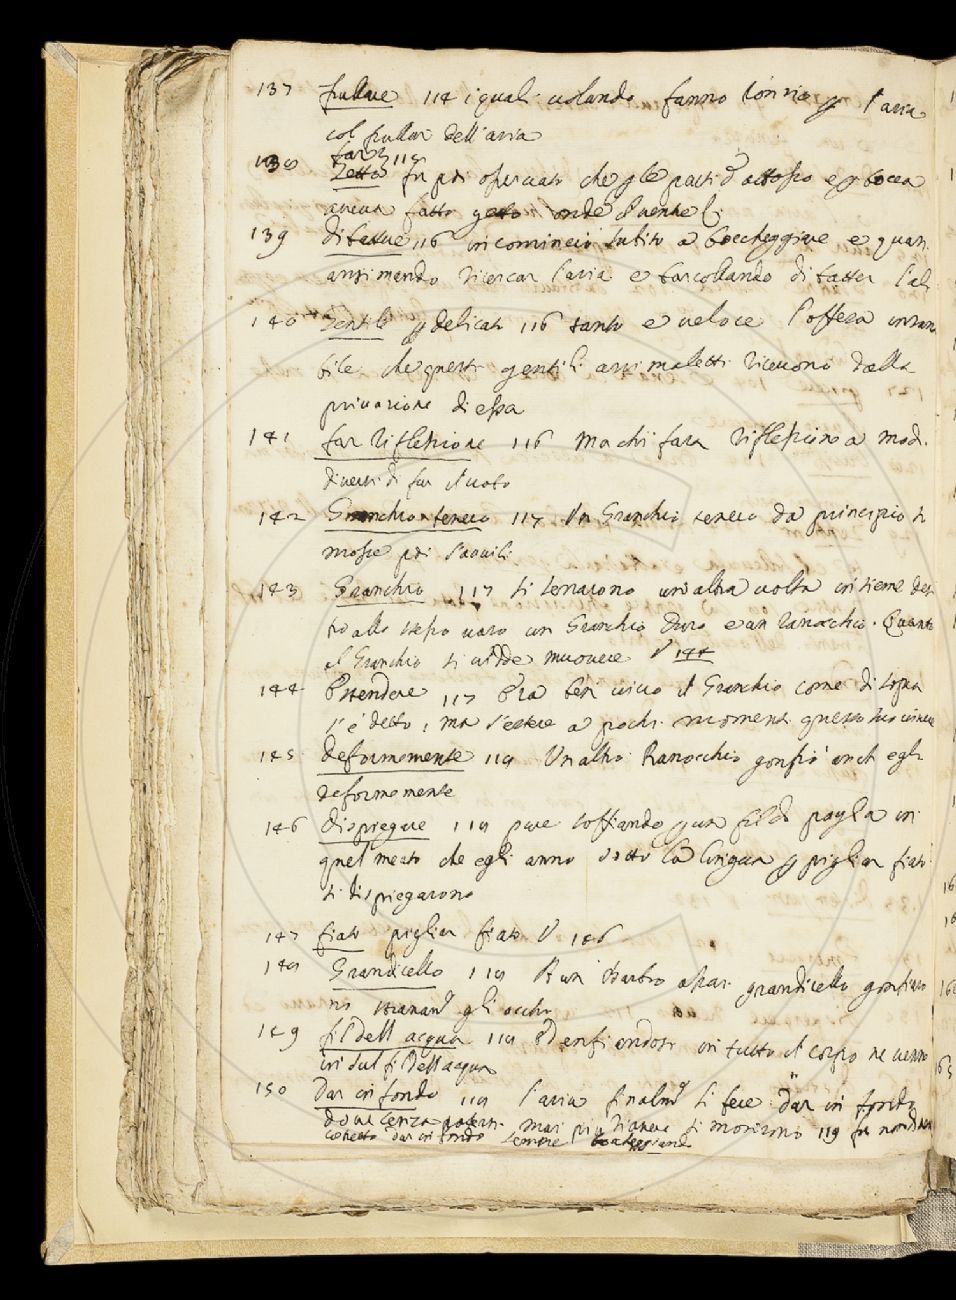 137 frullare 114 i quali volando fanno sonria p l'aria
col frullar dell'aria
138 far 115
Getto fu poi osservato che p le parti d'attosso e p bocca
aveva fatto getto onde
139 dibattere 116 incominciò subito a boccheggiare e quasi
ansimando ricercar l'aria e barcollando dibatter l'ali
140 Gentile p delicato 116 tanto e veloce l'offesa
bile che questi gentili animaletti ricevono dalla
privazione di essa
141 far riflessione 116 ma chi farà riflessione a modi
diversi di far il voto
142 Granchio tenero 117 Un Granchio tenero da principio si
mosse poi s'avvilì
143 Granchio 117 si serrarono un'altra volta insieme den
tro allo stesso vaso un Granchio duro e un ranocchio. Quanto
al Granchio si vidde muovere V 144
144 Ostendere 117 Era ben vivo il Granchio come di sopra
s'è detto, ma s'estese a pochi momenti questo suo vivere
145 deformemente 118 Un altro Ranocchio gonfiò anch'egli
deformemente
146 dispiegare 118 pure soffiando p un fil di paglia in
quel meato che egli anno sotto la lingua p pigliar fiato
si dispiegarono
147 fiato pigliar fiato V 146
148 Grandicello 118 A un Barbio assai grandicello gonfiaro
no stranam.e gli occhi
149 fil dell acqua 118 Ed enfiandosi in tutto il corpo ne venne
in sul fil dell acqua
150 Dar in fondo 118 l'aria finalm.e si fece dar in fondo
dove senza potersi mai più riavere si morirono 119 fu
costretto dar in fondo sempre boccheggiando